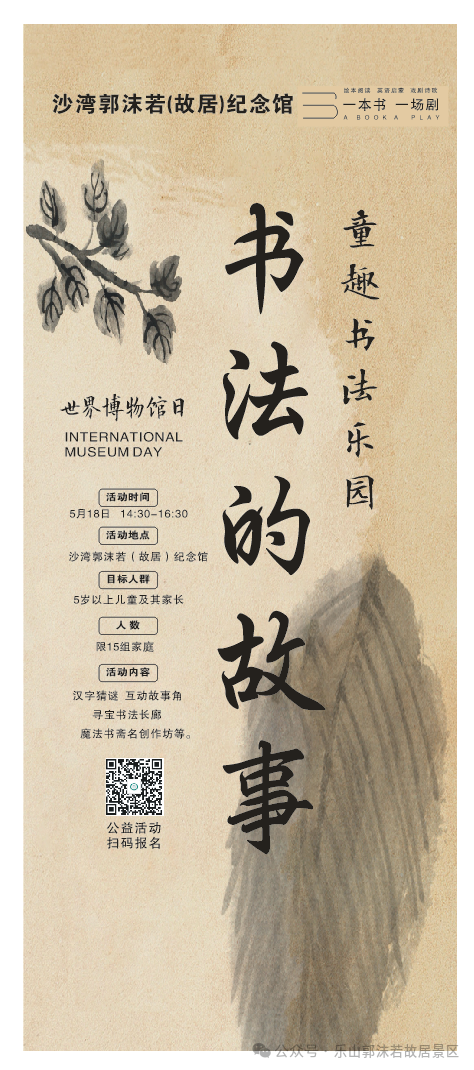 沙湾郭沫若(故居)纪念馆
绘本阅读 英语启蒙 戏剧诗歌
一本书 一场剧
A BOOK A PLAY
书法的故事
童趣书法乐园
世界博物馆日
INTERNATIONAL
MUSEUM DAY
活动时间
5月18日 14:30-16:30
活动地点
沙湾郭沫若（故居）纪念馆
目标人群
5岁以上儿童及其家长
人 数
限15组家庭
活动内容
汉字猜谜 互动故事角
寻宝书法长廊
魔法书斋名创作坊等。
公益活动
扫码报名
公众号 · 乐山郭沫若故居景区